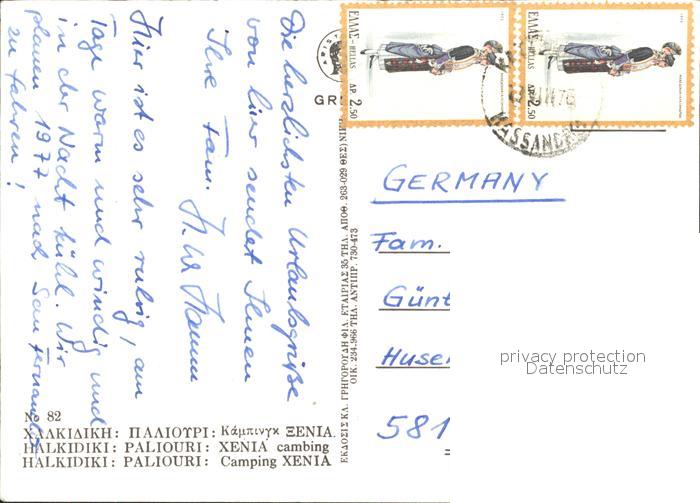 Die herzlichsten Urlaubsgrüße
von hier sendet Ihnen
Ihre Fam.
Hier ist es sehr ruhig, am
Tage warm und windig und
in der Nacht kühl. Wir
planen 1977 nach San Fernando
zu fahren!
ΕΛΛΑΣ-HELLAS
ΔΡ 2.50
ΕΛΛΑΣ-HELLAS
ΔΡ 2.50
GERMANY
Fam.
Günt
Huse
581
privacy protection
Datenschutz
ΕΚΔΟΣΙΣ ΚΛ. ΓΡΗΓΟΡΟΥΔΗ ΦΙΛ. ΕΤΑΙΡΙΑΣ 35 ΤΗΛ. ΑΠΟΘ. 263-029 ΘΕΣ)ΝΙΚΗ
ΟΙΚ. 234.966 ΤΗΛ. ΑΝΤΙΠΡ. 730-473
No 82
ΧΑΛΚΙΔΙΚΗ: ΠΑΛΙΟΥΡΙ: Κάμπινγκ ΞΕΝΙΑ.
HALKIDIKI: PALIOURI: XENIA cambing
HALKIDIKI: PALIOURI: Camping XENIA